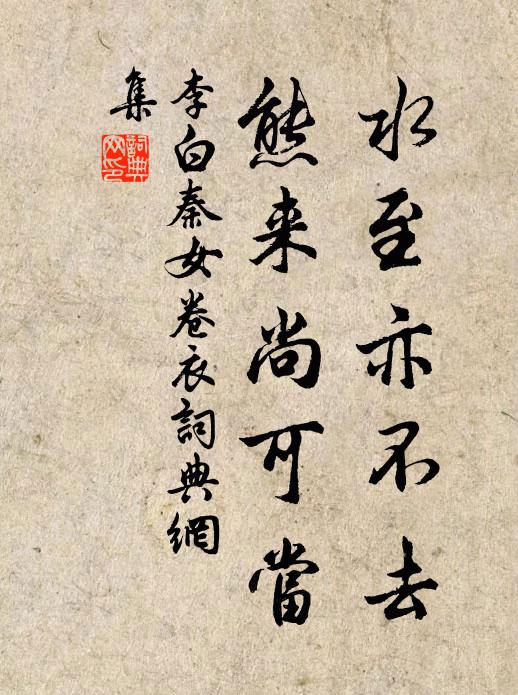 水至亦不去
熊来尚可當
李白秦女卷衣詞典網
集
詞典
网印